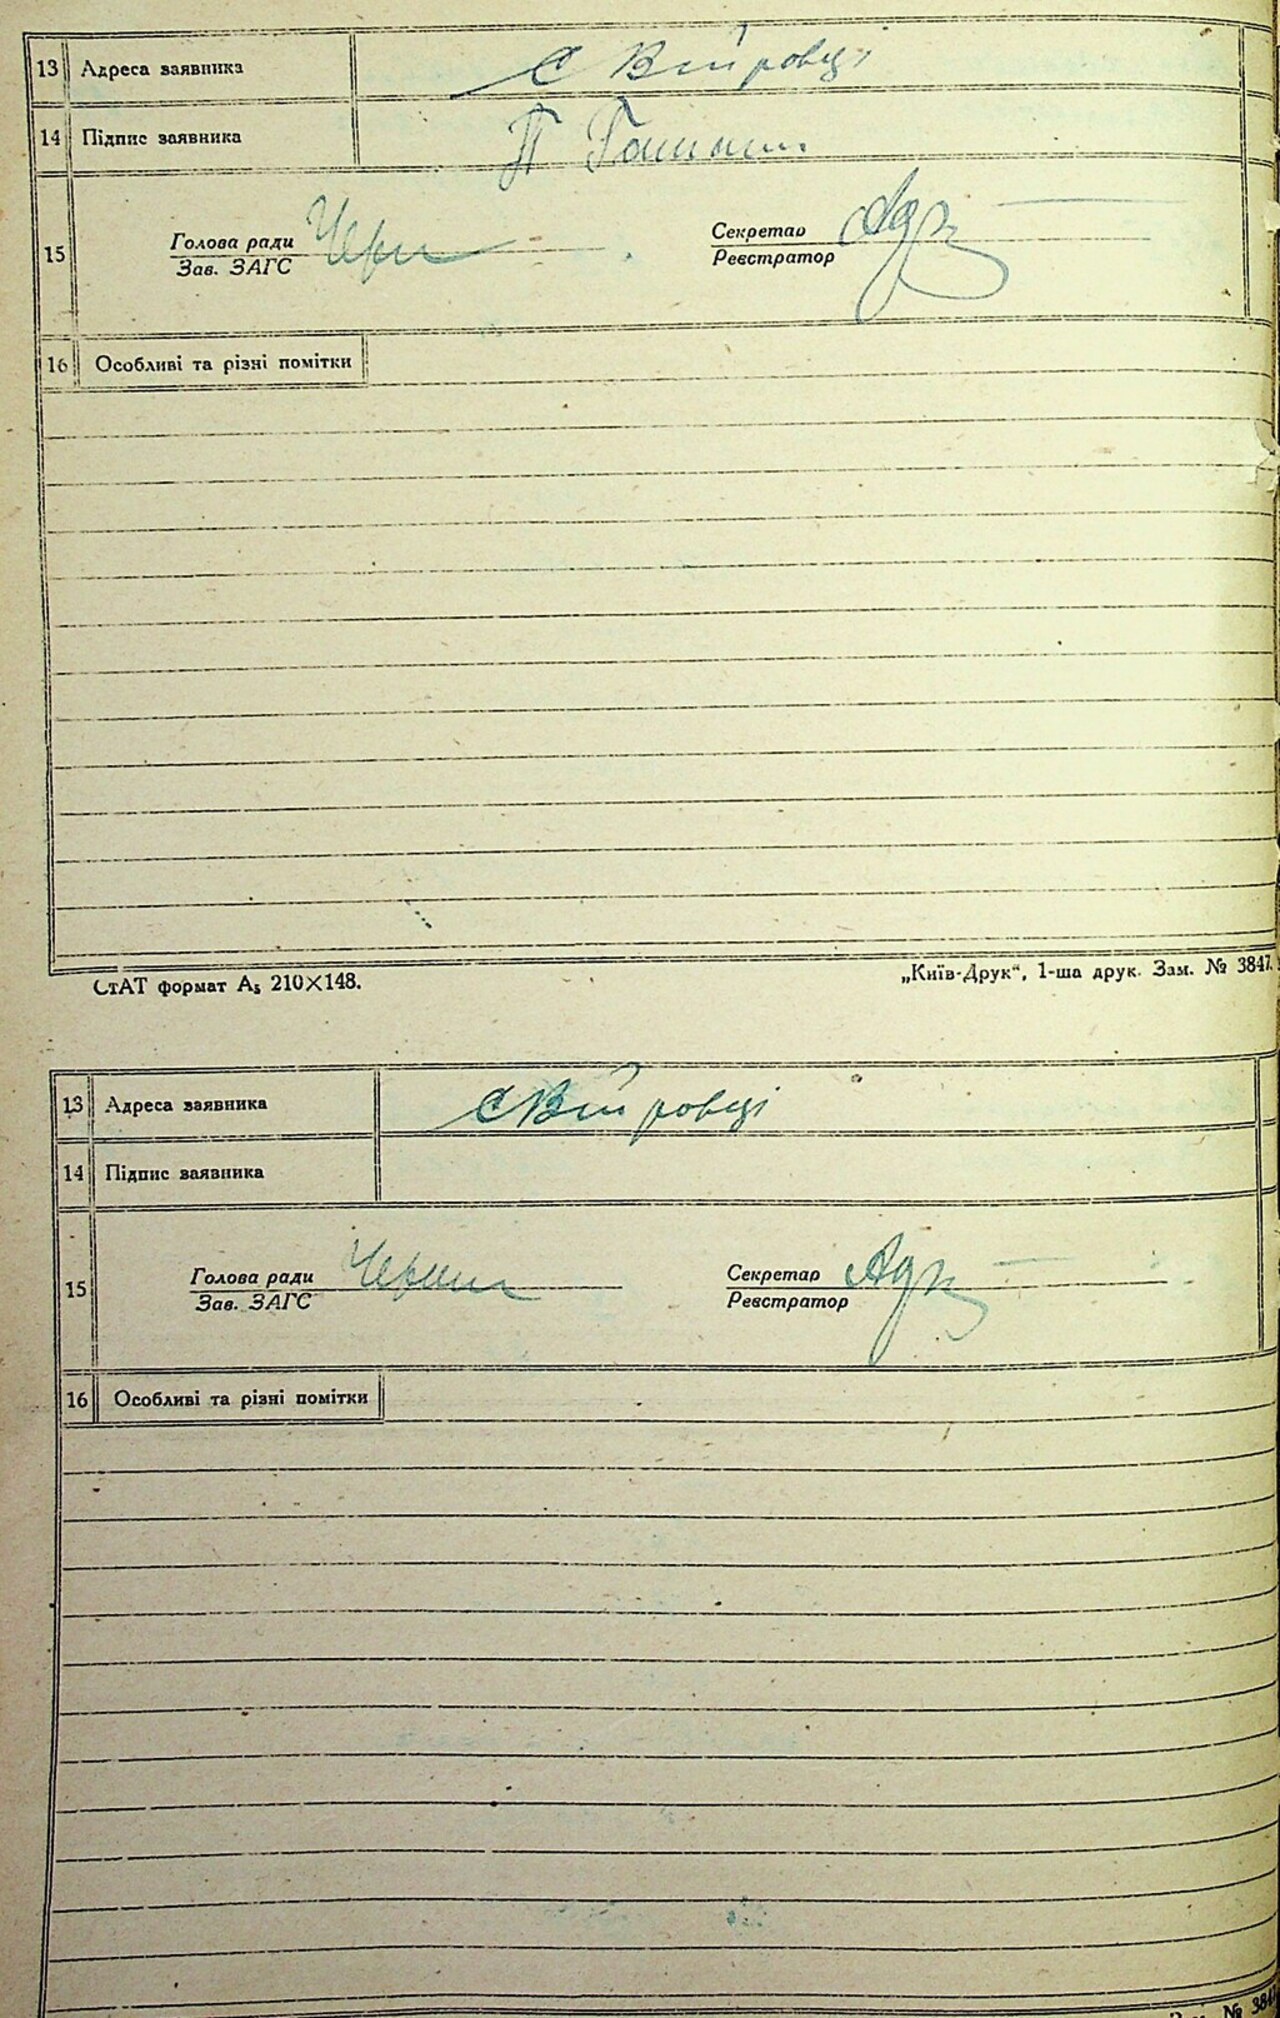 13 Адреса заявника с Вітровці
14 Підпис заявника П
15 Голова ради Секретар
Зав. ЗАГС Реєстратор
16 Особливі та різні помітки
СтАТ формат А5 210×148. „Київ-Друк“, 1-ша друк. Зам. № 3847.
13 Адреса заявника с Вітровці
14 Підпис заявника
15 Голова ради Секретар
Зав. ЗАГС Реєстратор
16 Особливі та різні помітки
№ 384